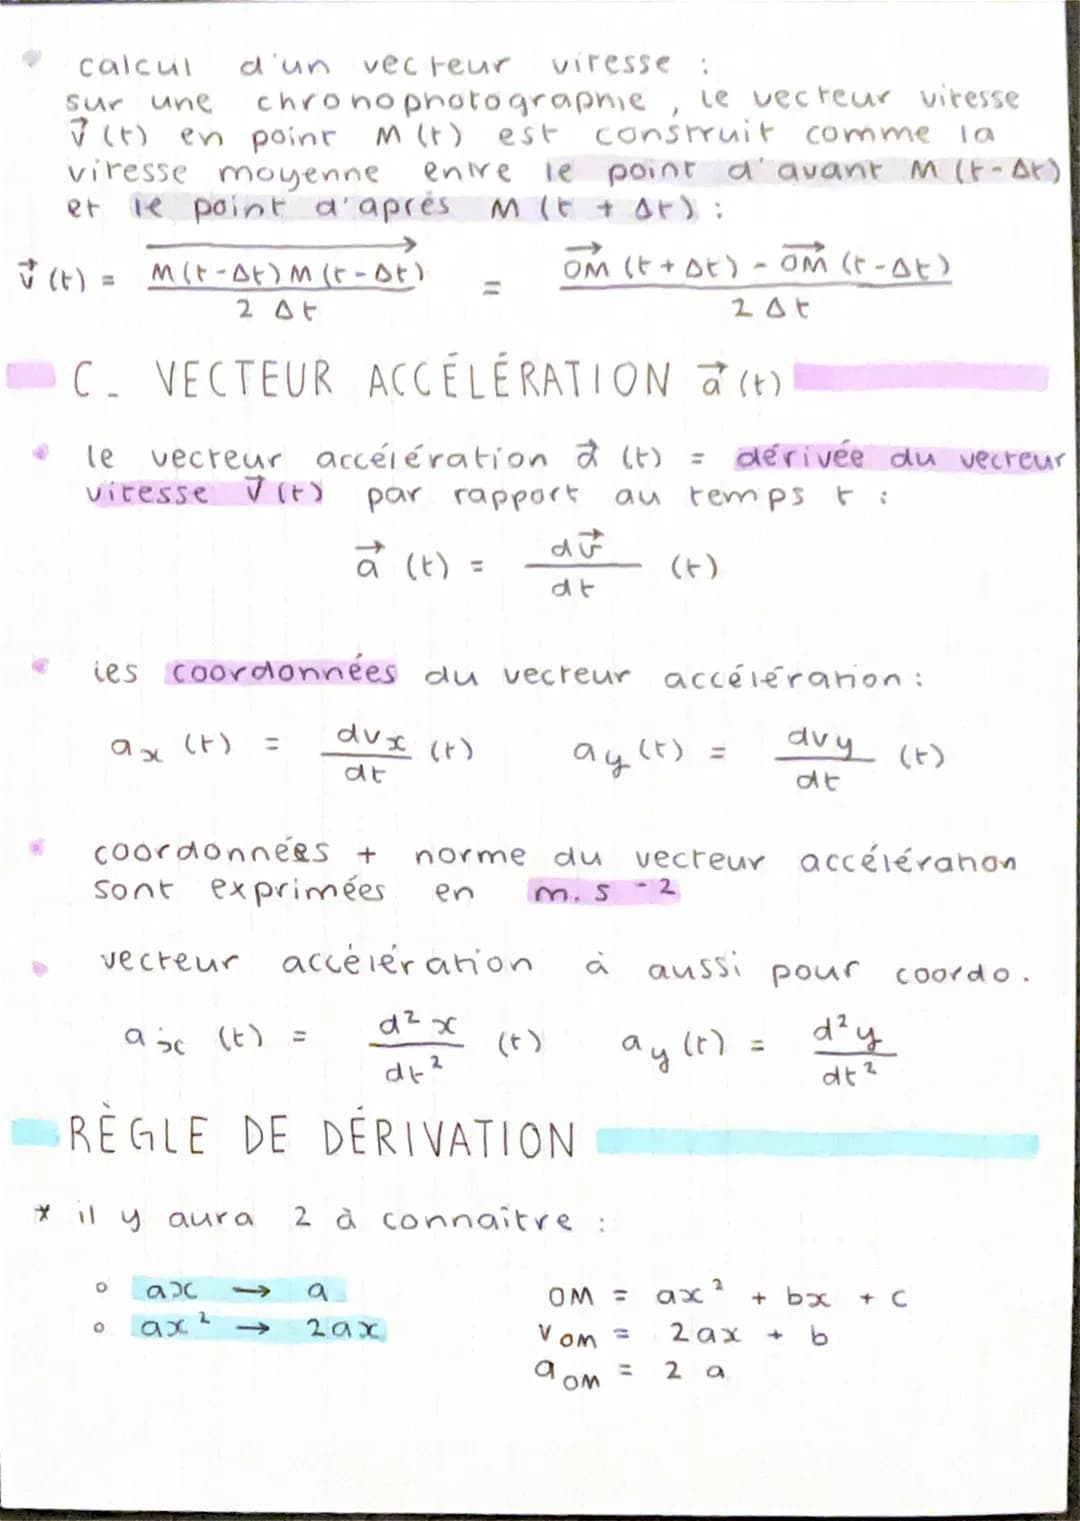 calcul d'un vecteur vitesse :
sur une chronophotographie, le vecteur vitesse
v⃗ (t) en point M (t) est construit comme la
vitesse moyenne entre le point d'avant M (t-Δt)
et le point d'après M (t + Δt) :
v⃗ (t) = M(t-Δt) M (t-Δt) / 2 Δt = OM⃗ (t + Δt) - OM⃗ (t-Δt) / 2 Δt
C_ VECTEUR ACCÉLÉRATION a⃗ (t)
le vecteur accélération a⃗ (t) = dérivée du vecteur
vitesse v⃗ (t) par rapport au temps t :
a⃗ (t) = dv⃗ / dt (t)
les coordonnées du vecteur accélération :
ax (t) = dvx / dt (t) ay (t) = dvy / dt (t)
coordonnées + norme du vecteur accélération
sont exprimées en m. s -2
vecteur accélération à aussi pour coordo.
ax (t) = d²x / dt² (t) ay (t) = d²y / dt²
RÈGLE DE DÉRIVATION
* il y aura 2 à connaître :
ax → a
ax² → 2ax
OM = ax² + bx + c
VOM = 2ax + b
aOM = 2 a